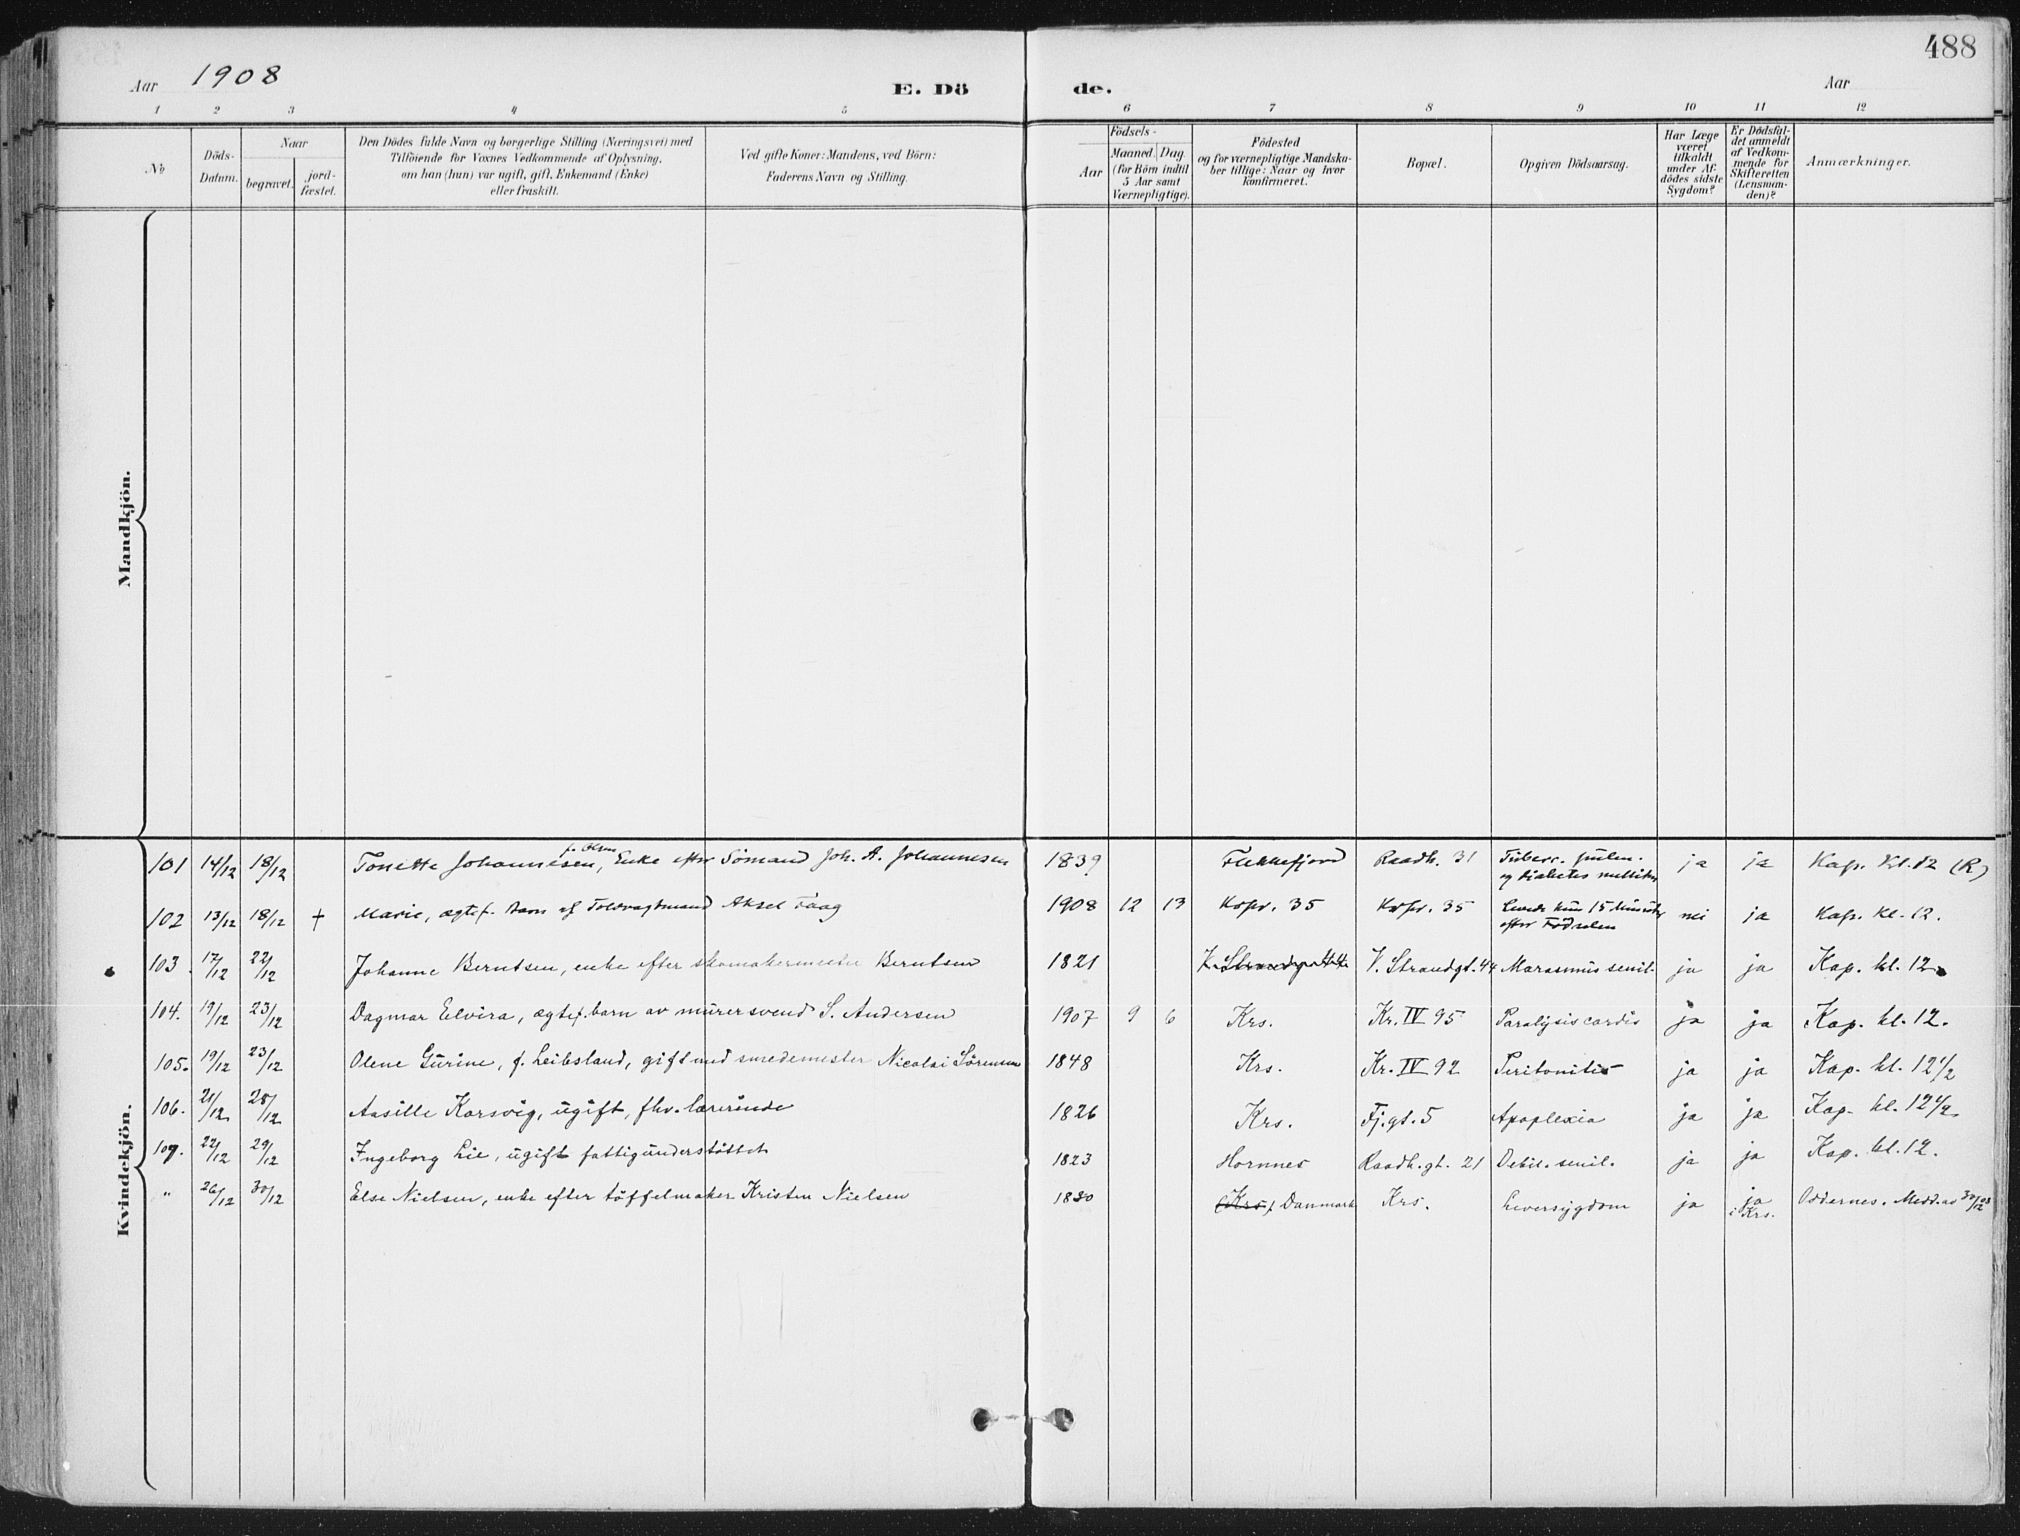 488
Aar 1908
E. Dö
de.
Aar
1 2 3 4 5 6 7 8 9 10 11 12
No
Döds-
Datum.
Naar
begravet.
jord-
fæstet.
Den Dödes fulde Navn og borgerlige Stilling (Næringsvei) med
Tilföiende for Voxnes Vedkommende af Oplysning,
om han (hun) var ugift, gift, Enkemand (Enke)
eller fraskilt.
Ved gifte Koner: Mandens, ved Börn:
Faderens Navn og Stilling.
Födsels-
Aar
Maaned. Dag.
(for Börn indtil
5 Aar samt
Værnepligtige).
Födested
og for værnepligtige Mandska-
ber tillige: Naar og hvor
konfirmeret.
Bopæl.
Opgiven Dödsaarsag.
Har Læge
været
tilkaldt
under Af-
dödes sidste
Sygdom?
Er Dödsfal-
det anmeldt
af Vedkom-
mende for
Skifteretten
(Lensman-
den)?
Anmærkninger.
Mandkjön.
Kvindekjön.
f. Olsen
101 14/12 18/12 Tonette Johannesen, Enke efter Sömand Joh. A. Johannesen 1839 Flekkefjord Raadh. 31 Tuberc. pulm. og diabetes mellitus ja ja Kap. kl. 12 (R)
102 13/12 18/12 † Marie, ægtef. barn af Toldvagtmand Aksel Faag 1908 12 13 Krpr. 35 Krpr. 35 Levede kun 15 Minutter efter Födselen nei ja Kap. kl. 12.
103. 17/12 22/12 Johanne Berntsen, enke efter skomakermester Berntsen 1821 V. Strandgt. 44 Marasmus senil. ja ja Kap. kl. 12.
104. 19/12 23/12 Dagmar Elvira, ægtef. barn av murersvend S. Andersen 1907 9 6 Krs. Kr. IV 95 Paralysis cordis ja ja Kap. kl. 12.
105. 19/12 23/12 Olene Gurine, f. Leibsland, gift med smedemester Nicolai Sörensen 1848 Krs. Kr. IV 92 Peritonitis ja ja Kap. kl. 12 1/2
106. 21/12 28/12 Aasille Korsvig, ugift, fhv. lærerinde 1826 Krs. Fj.gt. 5 Apoplexia ja ja Kap. kl. 12 1/2
107. 22/12 29/12 Ingeborg Lie, ugift fattigunderstöttet 1823 Hornnes Raadh. gt. 21 Debil. senil. ja ja Kap. kl. 12.
" 26/12 30/12 Else Nielsen, enke efter töffelmaker Kristen Nielsen 1830 Krs. Danmark Krs. Leversygdom ja ja i Krs. Oddernes. Medd. av 30/12 08